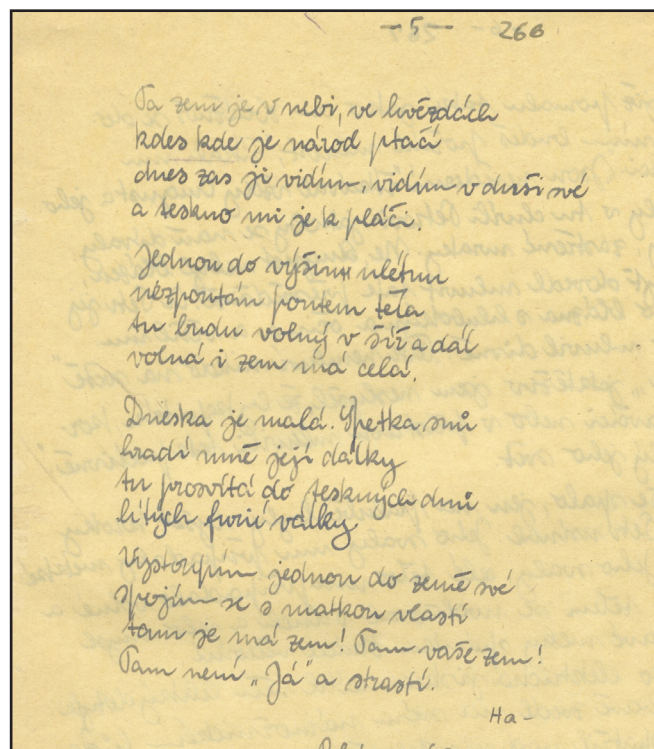 — 5 — 266
Ta zem je v nebi, ve hvězdách
kdes kde je národ ptačí
dnes zas ji vidím, vidím v duši své
a teskno mi je k pláči.
Jednou do výšin ulétnu
nezpoután poutem těla
tu budu volný v šíř a dál
volná i zem má celá.
Dneska je malá. Spetka snů
hradí mně její dálky
tu prosvítá do teskných dnů
lítých furií války
Vystoupím jednou do země své
spojím se s matkou vlastí
tam je má zem! Tam vaše zem!
Tam není „Já" a strastí.
Ha-